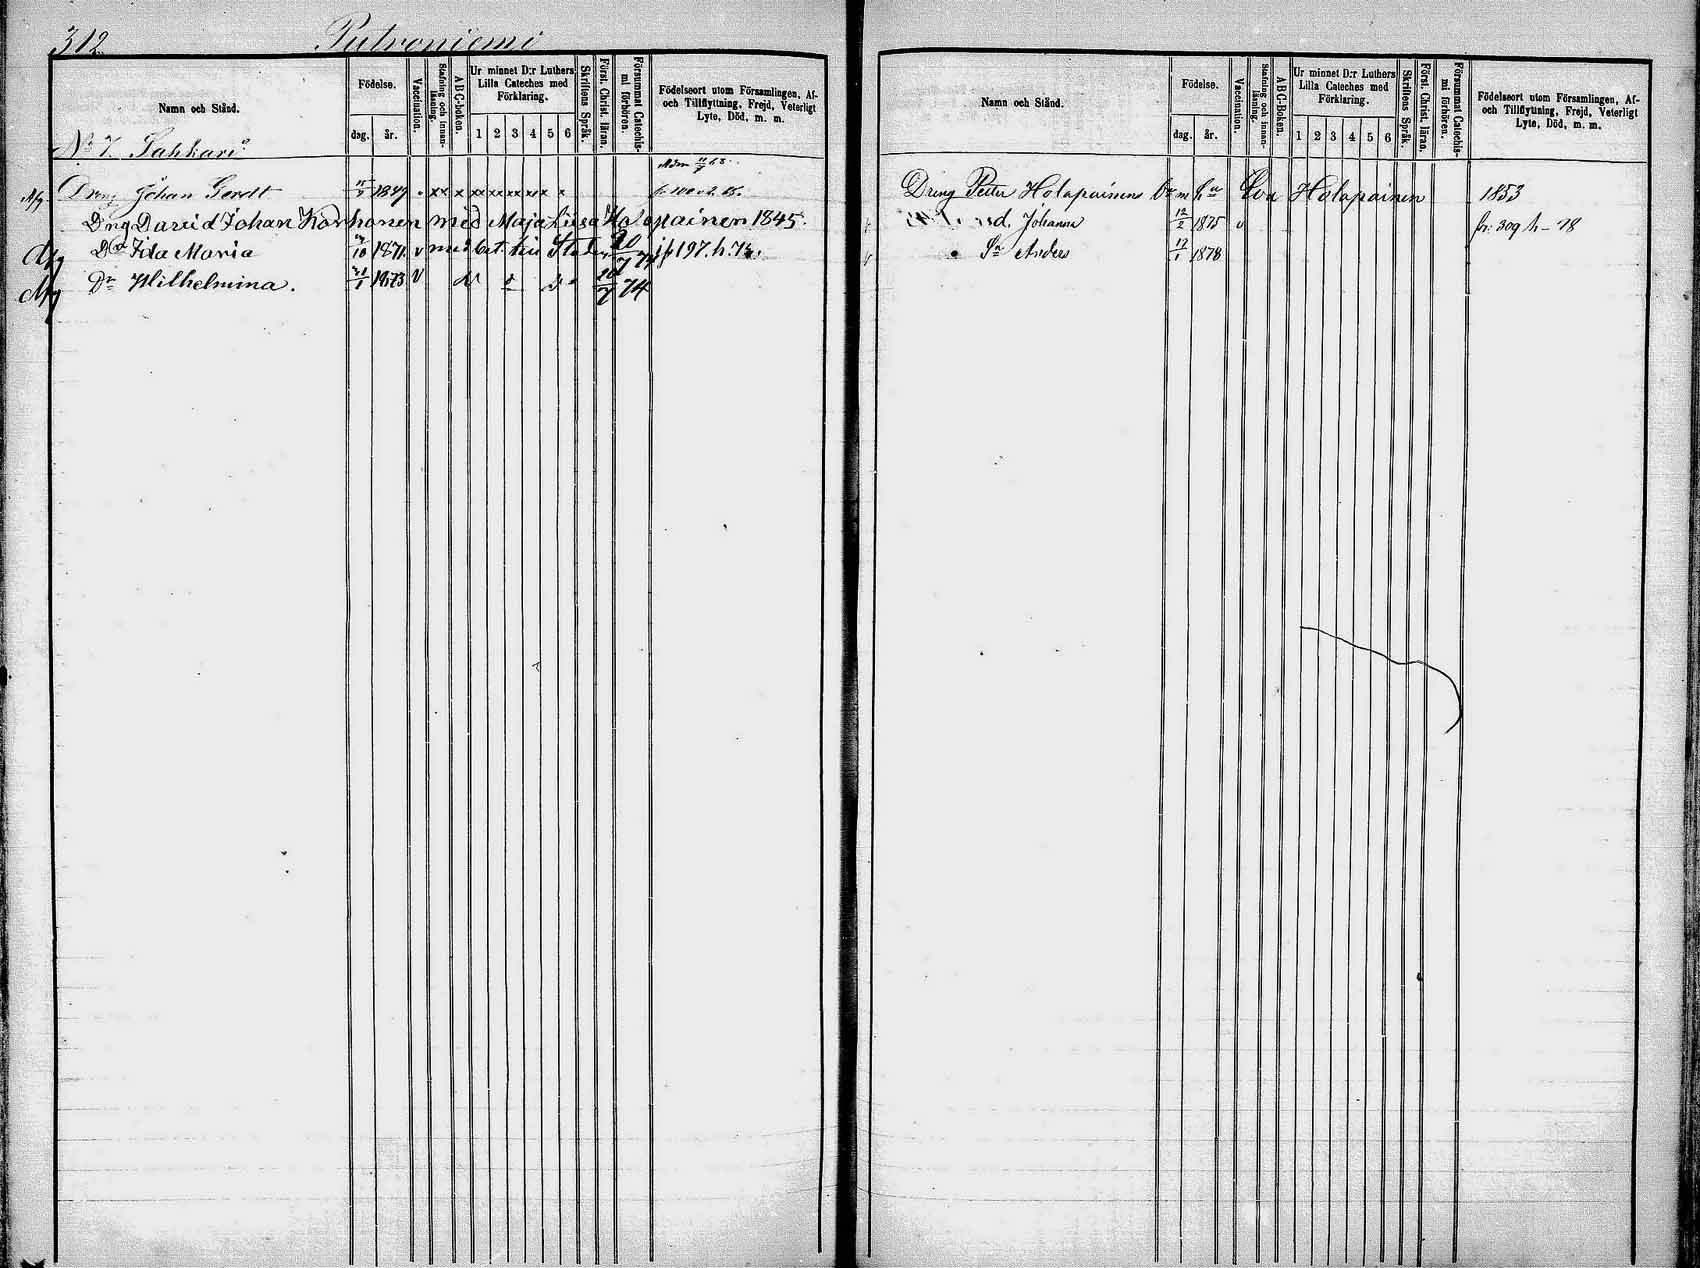 312 Putroniemi
Namn och Stånd.
Födelse.
dag. år.
Vaccination.
Stafning och innanläsning.
ABC-boken.
Ur minnet D:r Luthers Lilla Cateches med Förklaring.
1 2 3 4 5 6
Skriftens Språk.
Först. Christ. läran.
Försummat Catechismi förhören.
Födelseort utom Församlingen, Af- och Tillflyttning, Frejd, Veterligt Lyte, Död, m. m.
No 7. Sahkari
Dreng Johan Gerdt 1849
Dng David Johan Korhonen med Maja Liisa Holopainen 1845.
Dr Ida Maria 1871 v med bet. till Staden 20/7 74 jfr 197. h.
Dr Wilhelmina. 1873 v 20/7 74
Namn och Stånd.
Födelse.
dag. år.
Vaccination.
Stafning och innanläsning.
ABC-Boken.
Ur minnet D:r Luthers Lilla Cateches med Förklaring.
1 2 3 4 5 6
Skriftens Språk.
Först. Christ. läran.
Försummat Catechismi förhören.
Födelseort utom Församlingen, Af- och Tillflyttning, Frejd, Veterligt Lyte, Död, m. m.
Dreng Petter Holapainen m Eva Holapainen 1853
d. Johanna 12/2 1875 v fr. 309 h - 78
Sn Anders 17/1 1878